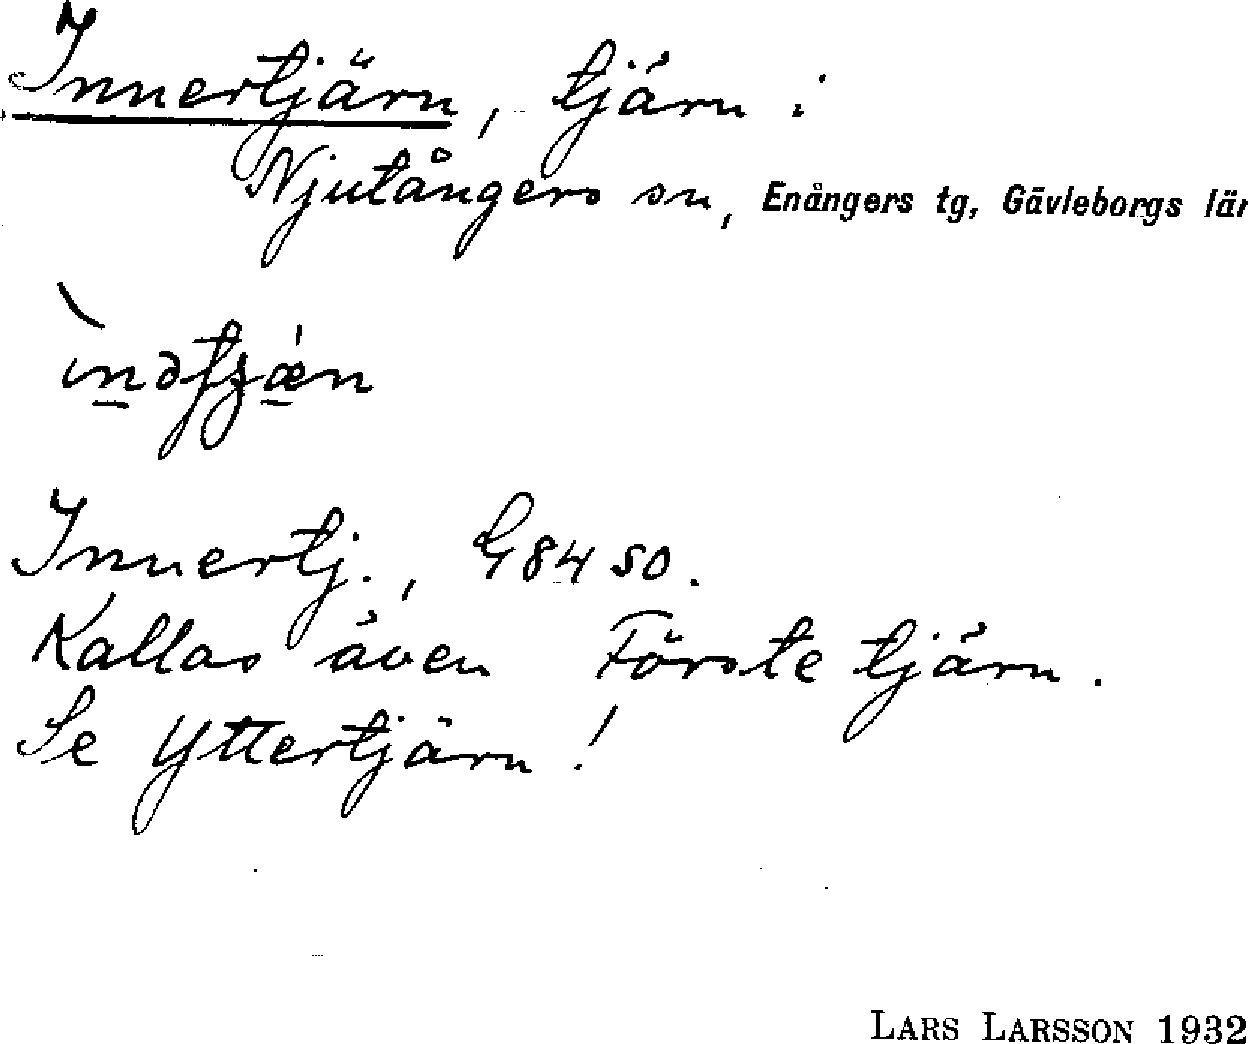 Innertjärn, tjärn i
Njutångers sn, Enångers tg, Gävleborgs län
Innertj., G84 SO.
Kallas även Förstetjärn.
Se Yttertjärn!
LARS LARSSON 1932